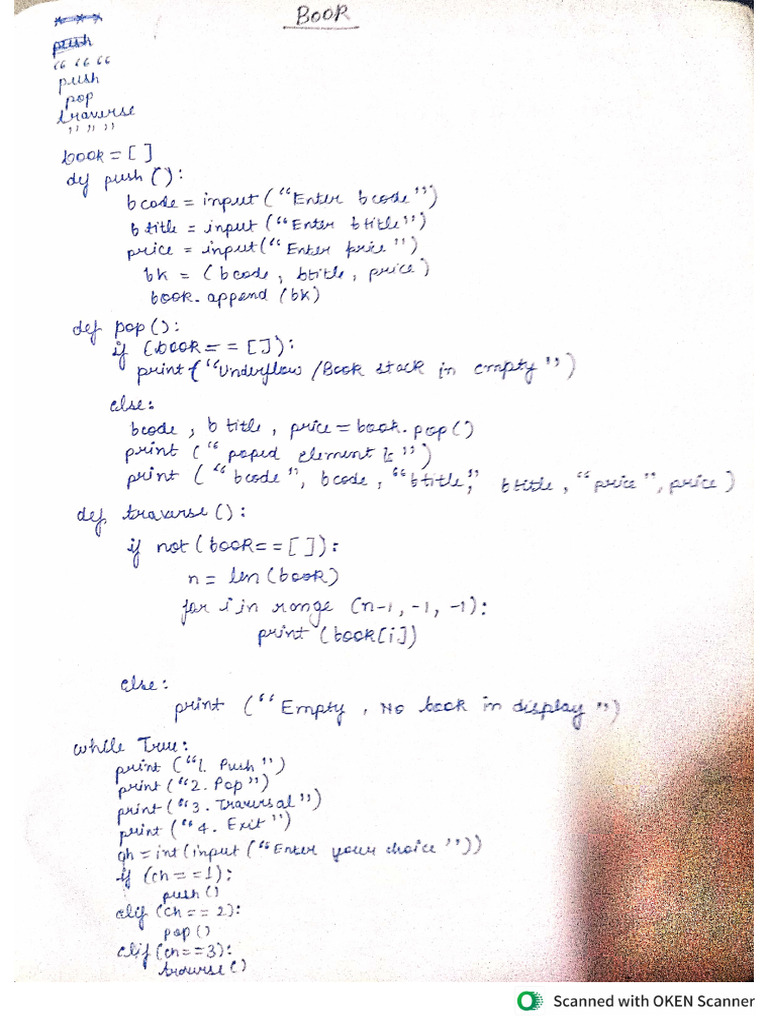 BOOK
push
“ “ “
push
pop
traverse
” ” ”
book = [ ]
def push ( ):
bcode = input ( “Enter bcode” )
btitle = input ( “Enter btitle” )
price = input( “Enter price” )
bk = ( bcode , btitle , price )
book. append (bk)
def pop ( ):
if (book = = [ ] ):
print ( “Underflow / Book stack in empty ” )
else:
bcode , b title , price = book. pop ( )
print ( “ poped element is ” )
print ( “ bcode ”, bcode , “btitle”, btitle , “price”, price )
def traverse ( ):
if not ( book = = [ ] ):
n = len (book)
for i in range (n-1, -1, -1):
print (book[i])
else:
print ( “ Empty , No book in display ” )
while True:
print ( “1. Push ” )
print ( “2. Pop ” )
print ( “3. Traversal ” )
print ( “4. Exit ” )
ch = int (input ( “Enter your choice ” ))
if (ch = = 1):
push ( )
elif (ch = = 2):
pop ( )
elif (ch = = 3):
traverse ( )
Scanned with OKEN Scanner